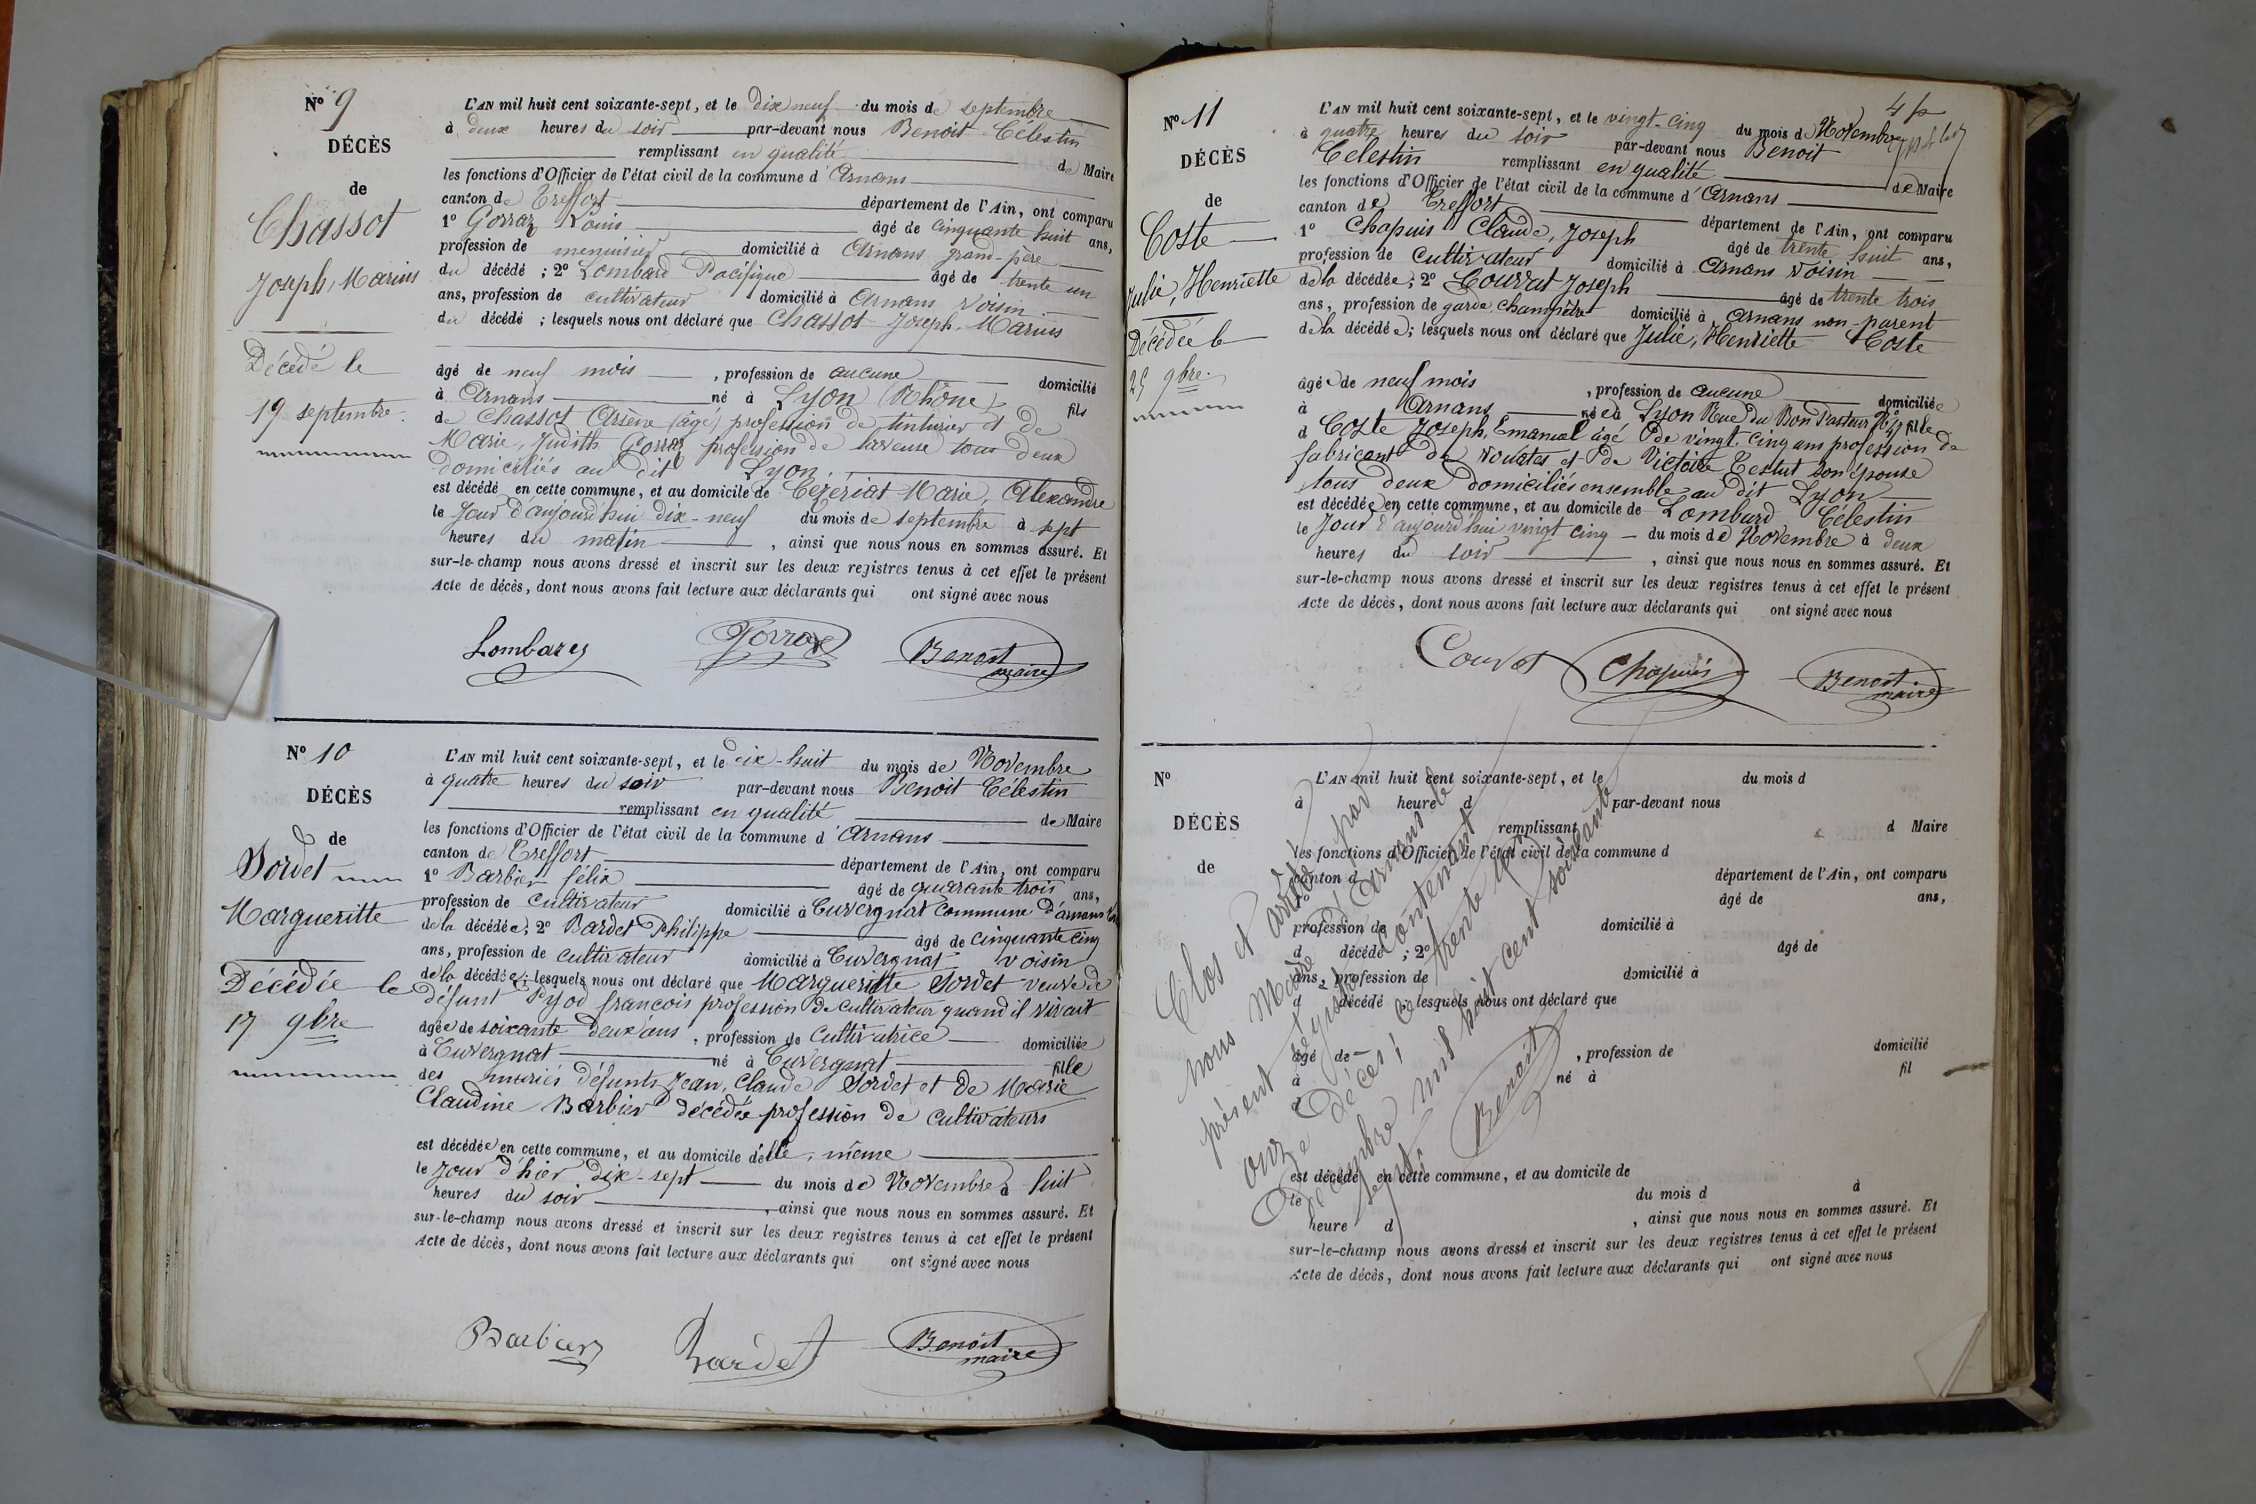 Nº 9
DÉCÈS
de
Chassot
Joseph, Marius
Décédé le
19 septembre.
L'AN mil huit cent soixante-sept, et le dix neuf du mois de septembre
à deux heures du soir par-devant nous Benoit Célestin
remplissant en qualité de Maire
les fonctions d'Officier de l'état civil de la commune d'Arnans
canton de Treffort département de l'Ain, ont comparu
1º Gorraz Louis âgé de cinquante huit ans,
profession de menuisier domicilié à Arnans grand-père
du décédé ; 2º Lombard Pacifique âgé de trente un
ans, profession de cultivateur domicilié à Arnans voisin
du décédé ; lesquels nous ont déclaré que Chassot Joseph, Marius
âgé de neuf mois , profession de aucune domicilié
à Arnans né à Lyon (Rhône) fils
de Chassot Arsène (âgé) profession de tinturier et de
Marie, Judith Gorraz profession de taveuse tous deux
domiciliés au dit Lyon.
est décédé en cette commune, et au domicile de Cézériat Marie, Alexandre
le Jour d'aujourd'hui dix-neuf du mois de septembre à sept
heures du matin , ainsi que nous nous en sommes assuré. Et
sur-le-champ nous avons dressé et inscrit sur les deux registres tenus à cet effet le présent
Acte de décès, dont nous avons fait lecture aux déclarants qui ont signé avec nous
Lombard Gorraz Benoit
maire
Nº 10
DÉCÈS
de
Sordet
Margueritte
Décédée le
17 9bre
L'AN mil huit cent soixante-sept, et le dix-huit du mois de Novembre
à quatre heures du soir par-devant nous Benoit Célestin
remplissant en qualité de Maire
les fonctions d'Officier de l'état civil de la commune d'Arnans
canton de Treffort département de l'Ain, ont comparu
1º Barbier félix âgé de quarante trois ans,
profession de cultivateur domicilié à Cuvergnat commune d'arnans
de la décédée ; 2º Bardet Philippe âgé de cinquante cinq
ans, profession de cultivateur domicilié à Cuvergnat voisin
de la décédée ; lesquels nous ont déclaré que Margueritte Sordet veuve de
défunt Pyod francois profession de cultivateur quand il vivait
âgée de soixante deux ans , profession de Cultivatrice domiciliée
à Cuvergnat né à Cuvergnat fille
des mariés défunts Jean, Claude Sordet et de Marie
Claudine Barbier décédée profession de cultivateurs
est décédée en cette commune, et au domicile d'elle, même
le jour d'hier dix-sept du mois de Novembre à huit
heures du soir , ainsi que nous nous en sommes assuré. Et
sur-le-champ nous avons dressé et inscrit sur les deux registres tenus à cet effet le présent
Acte de décès, dont nous avons fait lecture aux déclarants qui ont signé avec nous
Barbier Bardet Benoit
maire
Nº 11
DÉCÈS
de
Coste
Julie, Henriette
Décédée le
25 9bre.
L'AN mil huit cent soixante-sept, et le vingt-cinq du mois de Novembre
à quatre heures du soir par-devant nous Benoit
Célestin remplissant en qualité de Maire
les fonctions d'Officier de l'état civil de la commune d'Arnans
canton de Treffort département de l'Ain, ont comparu
1º Chapuis Claude, Joseph âgé de trente huit ans,
profession de cultivateur domicilié à Arnans voisin
de la décédée ; 2º Couvat Joseph âgé de trente trois
ans, profession de garde champêtre domicilié à Arnans non-parent
de la décédée ; lesquels nous ont déclaré que Julie, Henriette Coste
âgée de neuf mois , profession de aucune domiciliée
à Arnans née à Lyon Rue du Bon Pasteur fille
d Coste Joseph, Emanuel âgé de vingt-cinq ans profession de
fabricant de et de Victoire Testut son épouse
tous deux domiciliés ensemble au dit Lyon
est décédée en cette commune, et au domicile de Lombard Célestin
le Jour d'aujourd'hui vingt cinq du mois de Novembre à deux
heures du soir , ainsi que nous nous en sommes assuré. Et
sur-le-champ nous avons dressé et inscrit sur les deux registres tenus à cet effet le présent
Acte de décès, dont nous avons fait lecture aux déclarants qui ont signé avec nous
Couvat Chapuis Benoit
maire
Nº
DÉCÈS
de
L'AN mil huit cent soixante-sept, et le du mois d
à heure d par-devant nous
remplissant d Maire
les fonctions d'Officier de l'état civil de la commune d
canton d département de l'Ain, ont comparu
1º âgé de ans,
profession de domicilié à
d décédé ; 2º âgé de
ans, profession de domicilié à
d décédé ; lesquels nous ont déclaré que
âgé de , profession de domicilié
à né à fil
d
est décédé en cette commune, et au domicile de
le du mois d à
heure d , ainsi que nous nous en sommes assuré. Et
sur-le-champ nous avons dressé et inscrit sur les deux registres tenus à cet effet le présent
Acte de décès, dont nous avons fait lecture aux déclarants qui ont signé avec nous
Clos et arrêté par
nous Maire d'Arnans le
présent registre contenant
onze décès; ce trente un
Décembre mil huit cent soixante
sept.
Benoit